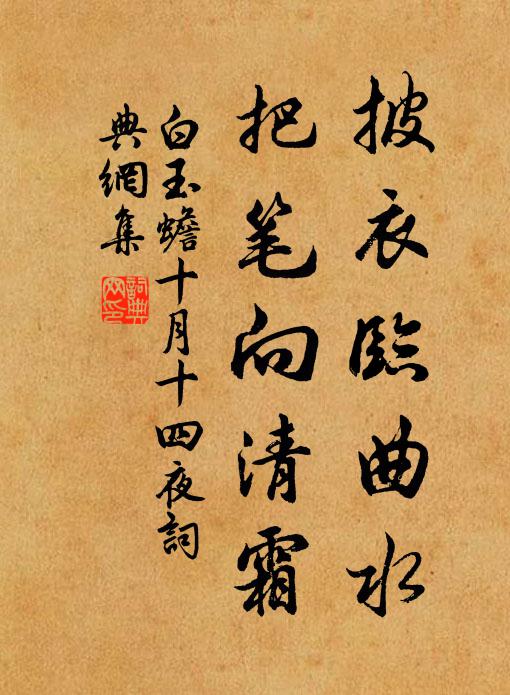 披衣臨曲水
把笔向清霜
白玉蟾十月十四夜詞
典網集
詞典
网印